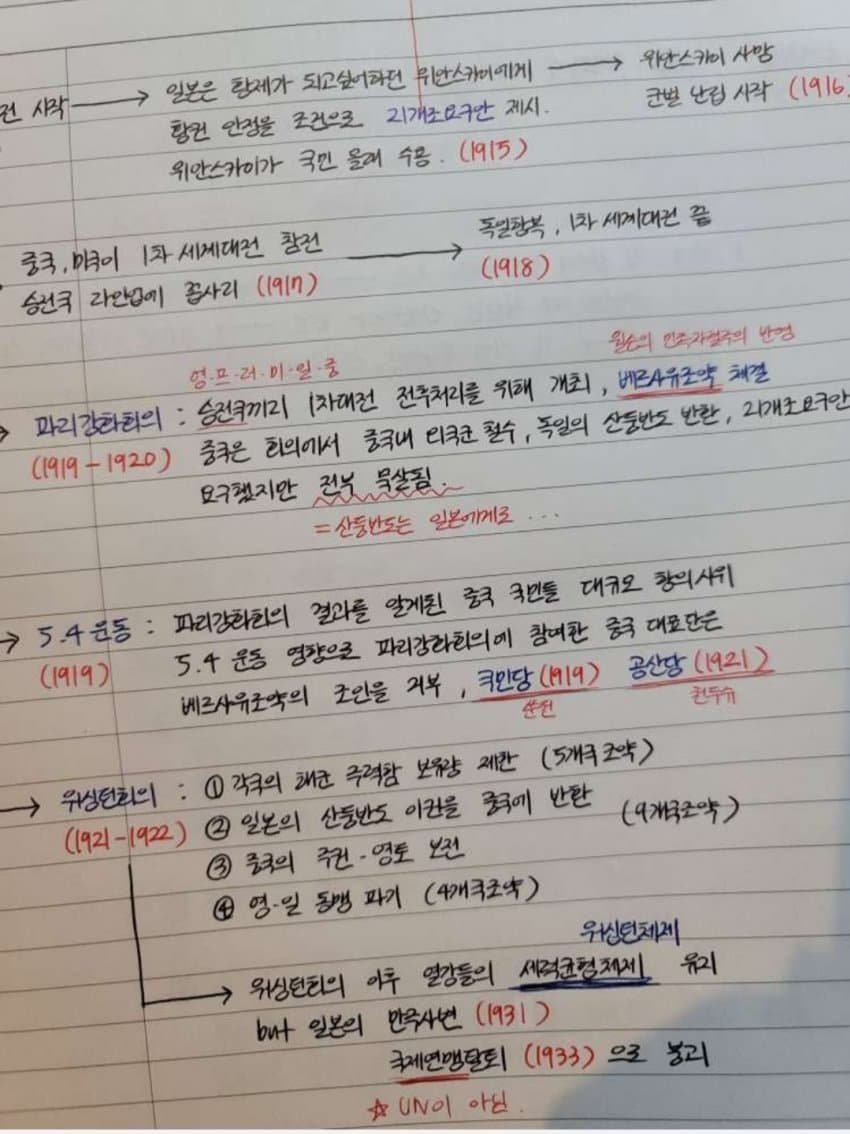 전 시작 → 일본은 황제가 되고싶어하던 위안스카이에게 → 위안스카이 사망
황권 인정을 조건으로 21개조요구안 제시. 군벌 난립 시작 (1916)
위안스카이가 국민 몰래 수용. (1915)
중국, 미국이 1차 세계대전 참전 → 독일항복, 1차 세계대전 끝
승전국 라인업에 꼽사리 (1917) (1918)
윌슨의 민족자결주의 반영
영·프·러·미·일·중
→ 파리강화회의 : 승전국끼리 1차대전 전후처리를 위해 개최, 베르사유조약 체결
(1919-1920) 중국은 회의에서 중국내 외국군 철수, 독일의 산둥반도 반환, 21개조요구안
요구했지만 전부 묵살됨.
= 산둥반도는 일본에게로 ...
→ 5.4 운동 : 파리강화회의 결과를 알게된 중국 국민들 대규모 항의시위
(1919) 5.4 운동 영향으로 파리강화회의에 참여한 중국 대표단은
베르사유조약의 조인을 거부, 국민당 (1919) 공산당 (1921)
쑨원 천두슈
→ 워싱턴회의 : ① 각국의 해군 주력함 보유량 제한 (5개국 조약)
(1921-1922) ② 일본의 산둥반도 이권을 중국에 반환 (9개국조약)
③ 중국의 주권·영토 보전
④ 영·일 동맹 파기 (4개국조약)
워싱턴체제
→ 워싱턴회의 이후 열강들의 세력균형체제 유지
but 일본의 만주사변 (1931)
국제연맹탈퇴 (1933) 으로 붕괴
☆ UN이 아님.